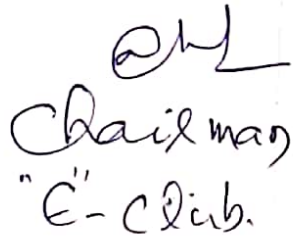 Chairman
"E"- Club.